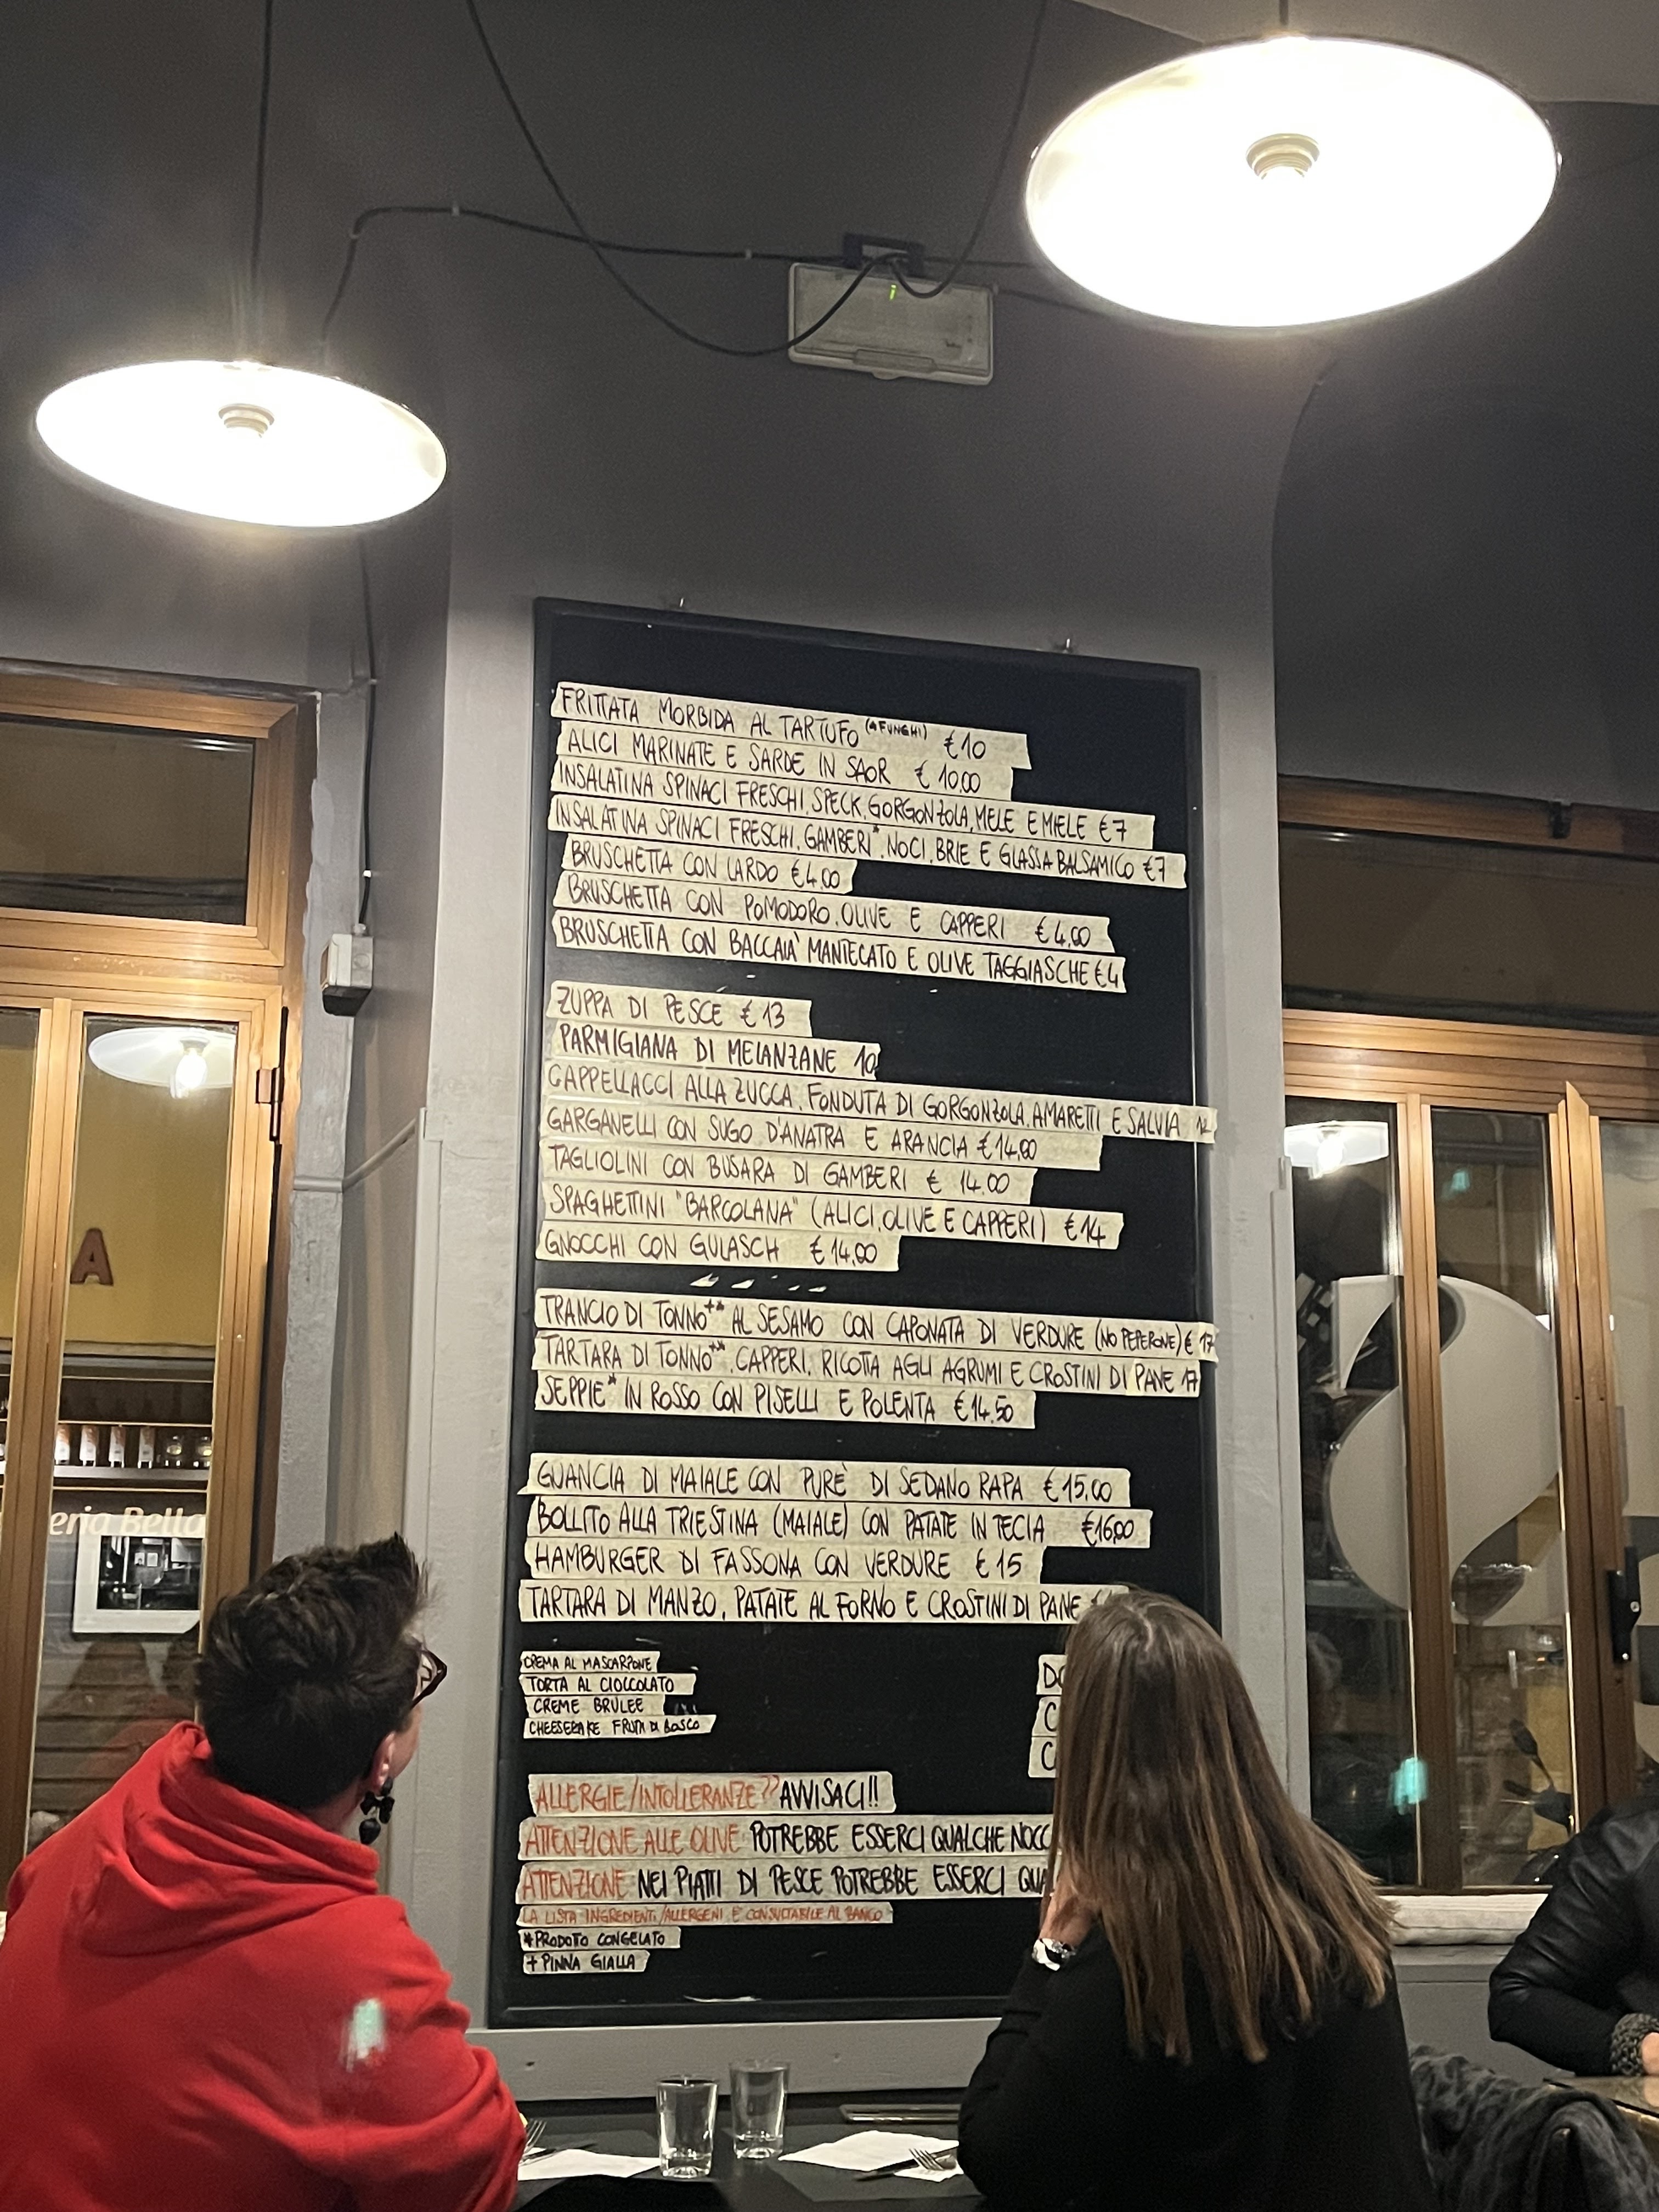 FRITTATA MORBIDA AL TARTUFO (& FUNGHI) €10
ALICI MARINATE E SARDE IN SAOR € 10,00
INSALATINA SPINACI FRESCHI, SPECK, GORGONZOLA, MELE E MIELE €7
INSALATINA SPINACI FRESCHI, GAMBERI*, NOCI, BRIE E GLASSA BALSAMICO €7
BRUSCHETTA CON LARDO €4,00
BRUSCHETTA CON POMODORO, OLIVE E CAPPERI €4,00
BRUSCHETTA CON BACCALA' MANTECATO E OLIVE TAGGIASCHE €4
ZUPPA DI PESCE €13
PARMIGIANA DI MELANZANE 10
CAPPELLACCI ALLA ZUCCA, FONDUTA DI GORGONZOLA, AMARETTI E SALVIA
GARGANELLI CON SUGO D'ANATRA E ARANCIA €14,00
TAGLIOLINI CON BUSARA DI GAMBERI € 14.00
SPAGHETTINI "BARCOLANA" (ALICI, OLIVE E CAPPERI) €14
GNOCCHI CON GULASCH €14,00
TRANCIO DI TONNO+* AL SESAMO CON CAPONATA DI VERDURE (NO PEPERONE) € 17
TARTARA DI TONNO+*, CAPPERI, RICOTTA AGLI AGRUMI E CROSTINI DI PANE 17
SEPPIE* IN ROSSO CON PISELLI E POLENTA €14.50
GUANCIA DI MAIALE CON PURÈ DI SEDANO RAPA €15,00
BOLLITO ALLA TRIESTINA (MAIALE) CON PATATE IN TECIA €16,00
HAMBURGER DI FASSONA CON VERDURE €15
TARTARA DI MANZO, PATATE AL FORNO E CROSTINI DI PANE
CREMA AL MASCARPONE
TORTA AL CIOCCOLATO
CREME BRULEE
CHEESECAKE FRUTTI DI BOSCO
ALLERGIE/INTOLLERANZE?? AVVISACI!!
ATTENZIONE ALLE OLIVE POTREBBE ESSERCI QUALCHE NOCC
ATTENZIONE NEI PIATTI DI PESCE POTREBBE ESSERCI QUA
LA LISTA INGREDIENTI/ALLERGENI E' CONSULTABILE AL BANCO
*PRODOTTO CONGELATO
+ PINNA GIALLA
A
eria Bella